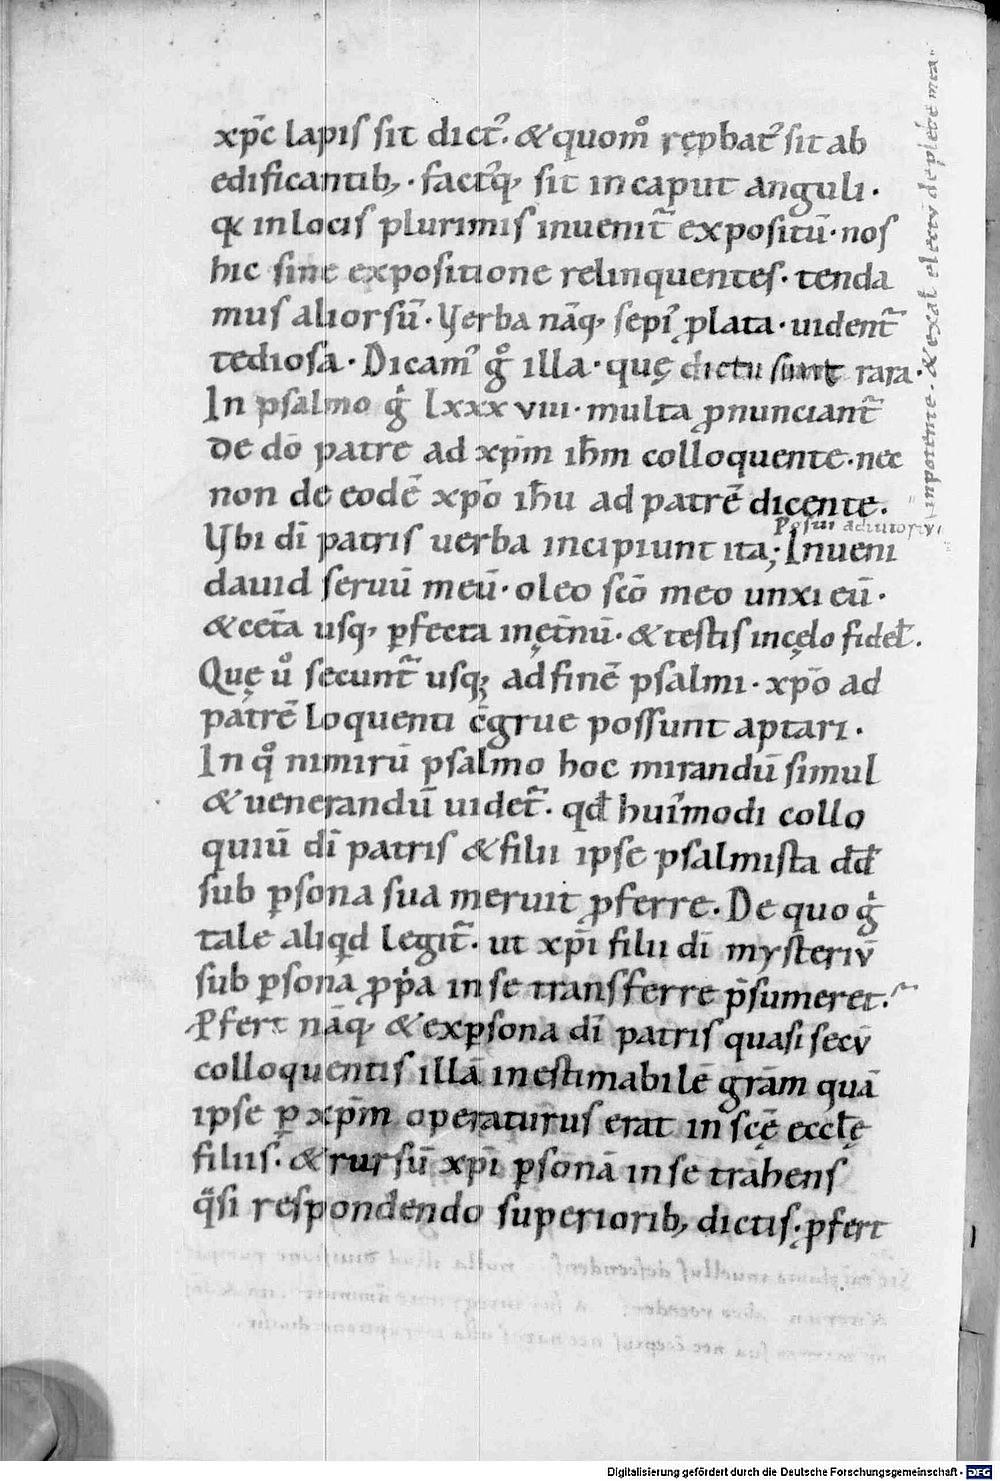 xp̄c lapis sit dict᷒. & quom̊ rep̱bat᷒ sit ab
edificantib; · fact᷒q; sit in caput anguli ·
qꝫ in locis plurimis inuenit᷑ expositū · nos
hic sine expositione relinquentes · tenda
mus aliorsū · Verba nāq; sepi᷒ ꝓlata · uident᷑
tediosa · Dicam᷒ g̊ illa · quę dictu sunt rara ·
In psalmo gͥ lxxxviii · multa ꝓnunciant᷑
de dō patre ad xp̄m ih̄m colloquente · nec
non de eodē xp̄o ih̄u ad patrē dicente.
Posui adiutoriū
in potente · & exalt̄ electū de plebe mea ·
Vbi dī patris uerba incipiunt ita; Inueni
dauid seruū meū · oleo scō meo unxi eū ·
& cet̄a usq; ꝑfecta in ęt̄nū · & testis in cęlo fidel̄ .
Quę ů secunt᷑ usq; ad finē psalmi · xp̄o ad
patrē loquenti c̄grue possunt aptari ·
In q̊ nimirū psalmo hoc mirandū simul
& uenerandū uidet᷑ · qđ hui᷒modi collo
quiū dī patris & filii ipse psalmista dđ
sub ꝑsona sua meruit ꝓferre. De quo gͥ
tale aliqd legit᷑ · ut xp̄i filii dī mysteriū
sub ꝑsona ꝓpͥa in se transferre p̄sumeret.
Ꝓfert nāq; & ex ꝑsona dī patris quasi secū
colloquentis illā inestimabilē gr̄am quā
ipse ꝑ xp̄m operaturus erat in scę̄ eccl̄ę
filiis · & rursū xp̄i ꝑsonā in se trahens
qͣsi respondendo superiorib; dictis · ꝓfert
Digitalisierung gefördert durch die Deutsche Forschungsgemeinschaft - DFG